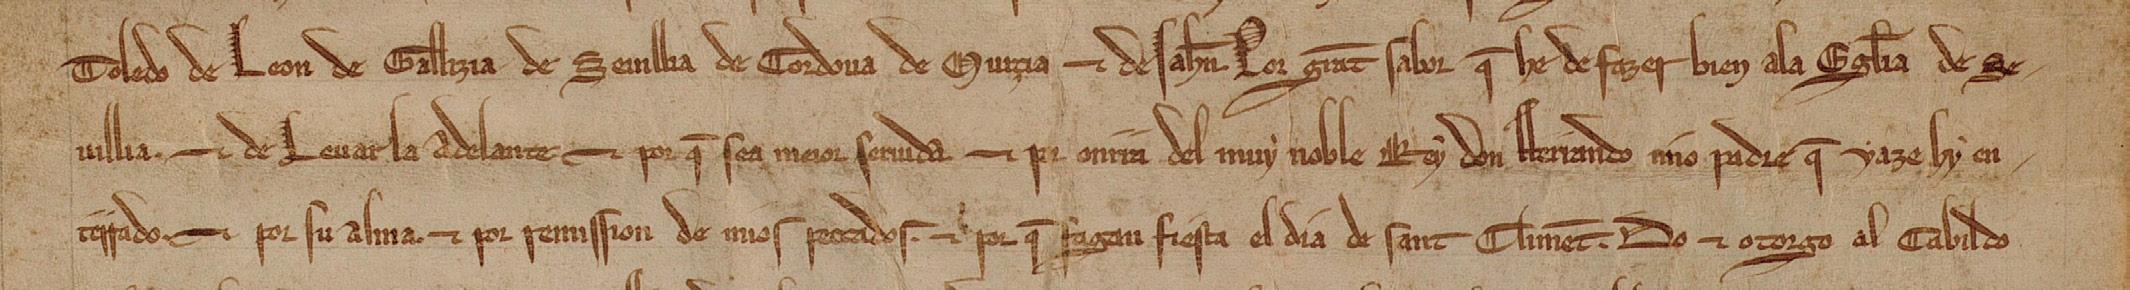 Toledo de Leon de Gallizia de Seuillia de Cordoua de Murçia ⁊ de Jahn̄. Por grāt sabor q̄ he de fazer bien ala Egl̄ia de Se
uillia. ⁊ de Leuar la Adelante ⁊ por q̄ sea meior seruida ⁊ por onrra del muy noble Rey don fferrando mio padre q̄ yaze hy en
terrado. ⁊ por su alma. ⁊ por remission de mios peccados. ⁊ por q̄ fagan fiesta el dia de sant Climēt. Do ⁊ otorgo al Cabildo